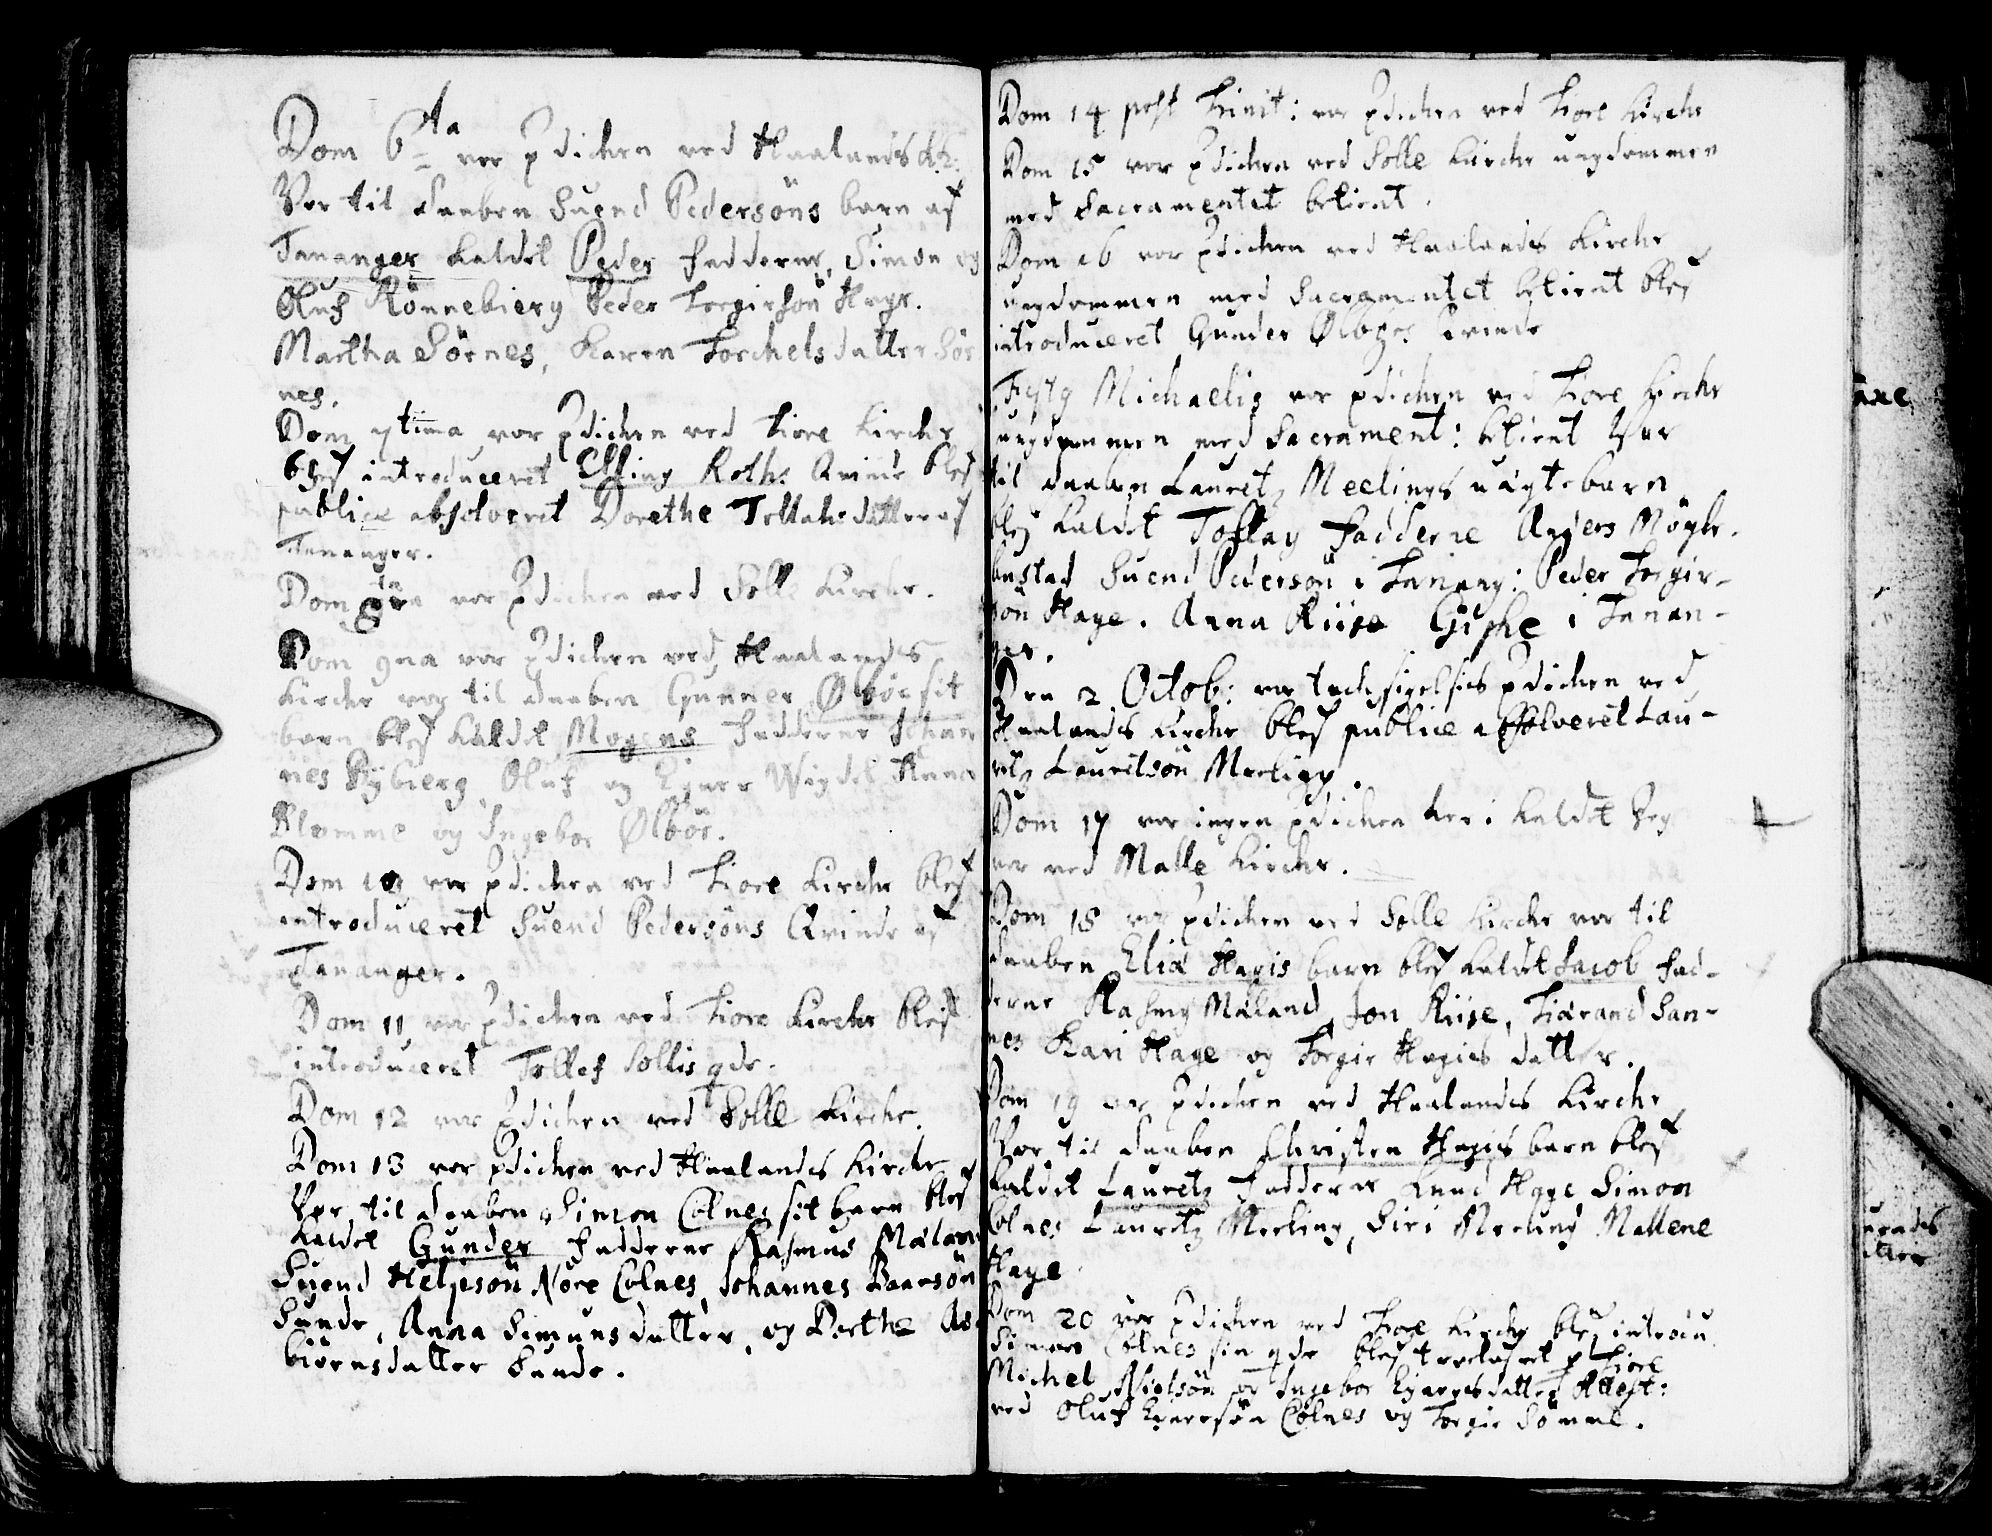 Dom 6ta vor pdichen ved Haalands Kr:
Var til daaben Suend Pedersöns barn af
Tananger kaldet Peder Fadderne, Simon og
Oluf Rönnebierg Peder Torgirsön Hage.
Martha Sörnes, Karen Torchelsdatter Sör
nes.
Dom 7tima vor pdichen ved Tiore Kirche
blef introduceret Elling Roths Qvinde blef
publice absolveret Dorethe Tollahsdatter af
Tananger.
Dom 8va vor pdichen ved Solle Kirche.
Dom 9na vor pdichen ved Haalands
Kirche var til daaben Gunner Ølbör sit
barn blef kaldet Mogens Fadderne Johan
nes Ryberg, Oluf og Ejner Wigdel Anna
Blomme og Ingebor Ølbör.
Dom 10 vor pdichen ved Tiore Kirche blef
introduceret Suend Pedersöns Qvinde af
Tananger.
Dom 11 vor pdichen ved Tiore Kirche blef
introduceret Tollef Sollis qde.
Dom 12 vor pdichen ved Solle Kirche.
Dom 13 vor pdichen ved Haalands Kirche
Var til daaben Simon Colnes sit barn blef
kaldet Gunder Fadderne Rasmus Mæland
Suend Helgesön Nore Colnes, Johannes Baarsön
Sunde, Anna Simunsdatter, og Berthe As
biörnsdatter Sunde.
Dom 14 post Trinit: vor pdichen ved Tiore Kirche
Dom 15 vor pdichen ved Solle Kirche ungdommen
med Sacramentet betient.
Dom 16 vor pdichen ved Haalands Kirche
ungdommen med Sacramentet betient blef
introduceret Gunder Ølbörs Qvinde
Festo Michaelis vor pdichen ved Tiore Kirche
ungdommen med Sacrament: betient Var
til daaben Lauretz Meelings uægte barn
blef kaldet Tollag Fadderne Anders Mögle-
bustad Suend Pedersön i Tanang: Peder Torgir-
sön Hage. Anna Riise Giske i Tanan-
ger.
Den 2 Octob: var tachsigelsis pdichen ved
Haalands Kirche blef publice absolveret Lau-
retz Lauretsön Meeling.
Dom 17 vor ingen pdichen her i kaldet Jeg
var ved Malle Kirche.
Dom 18 vor pdichen ved Solle Kirche var til
daaben Eliæ Hagis barn blef kaldet Jacob Fad-
derne Rasmus Mæland, Jon Riise, Tiærand San-
nes Kari Hage og Torgir Hagies datter.
Dom 19 vor pdichen ved Haalands Kirche
Var til daaben Christen Hagis barn blef
kaldet Lauretz Fadderne Knud Hage Simon
Colnes Lauretz Meeling, Siri Meeling Mallene
Hage
Dom 20 vor pdichen ved Tiore Kirche blef introdu
Simon Colnes sin qde blef trolofvet p Tiore
Michel Nielsön og Ingebor Ejnersdatter Attest:
ved Oluf Ejnersön Colnes og Torgir Sömme.